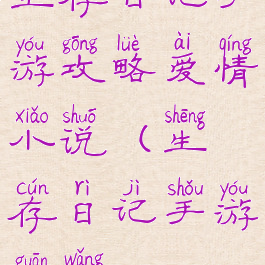 yóu gōng lüè ài qíng
游攻略爱情
xiǎo shuō shēng
小说（生
cún rì jì shǒu yóu
存日记手游
guān wǎng